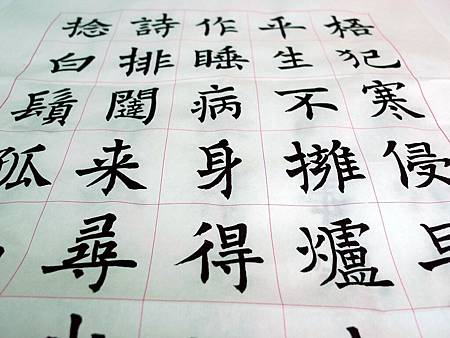 梧犯寒侵
平生不擁爐
作睡病身得
詩排闥来尋
捻白鬚孤